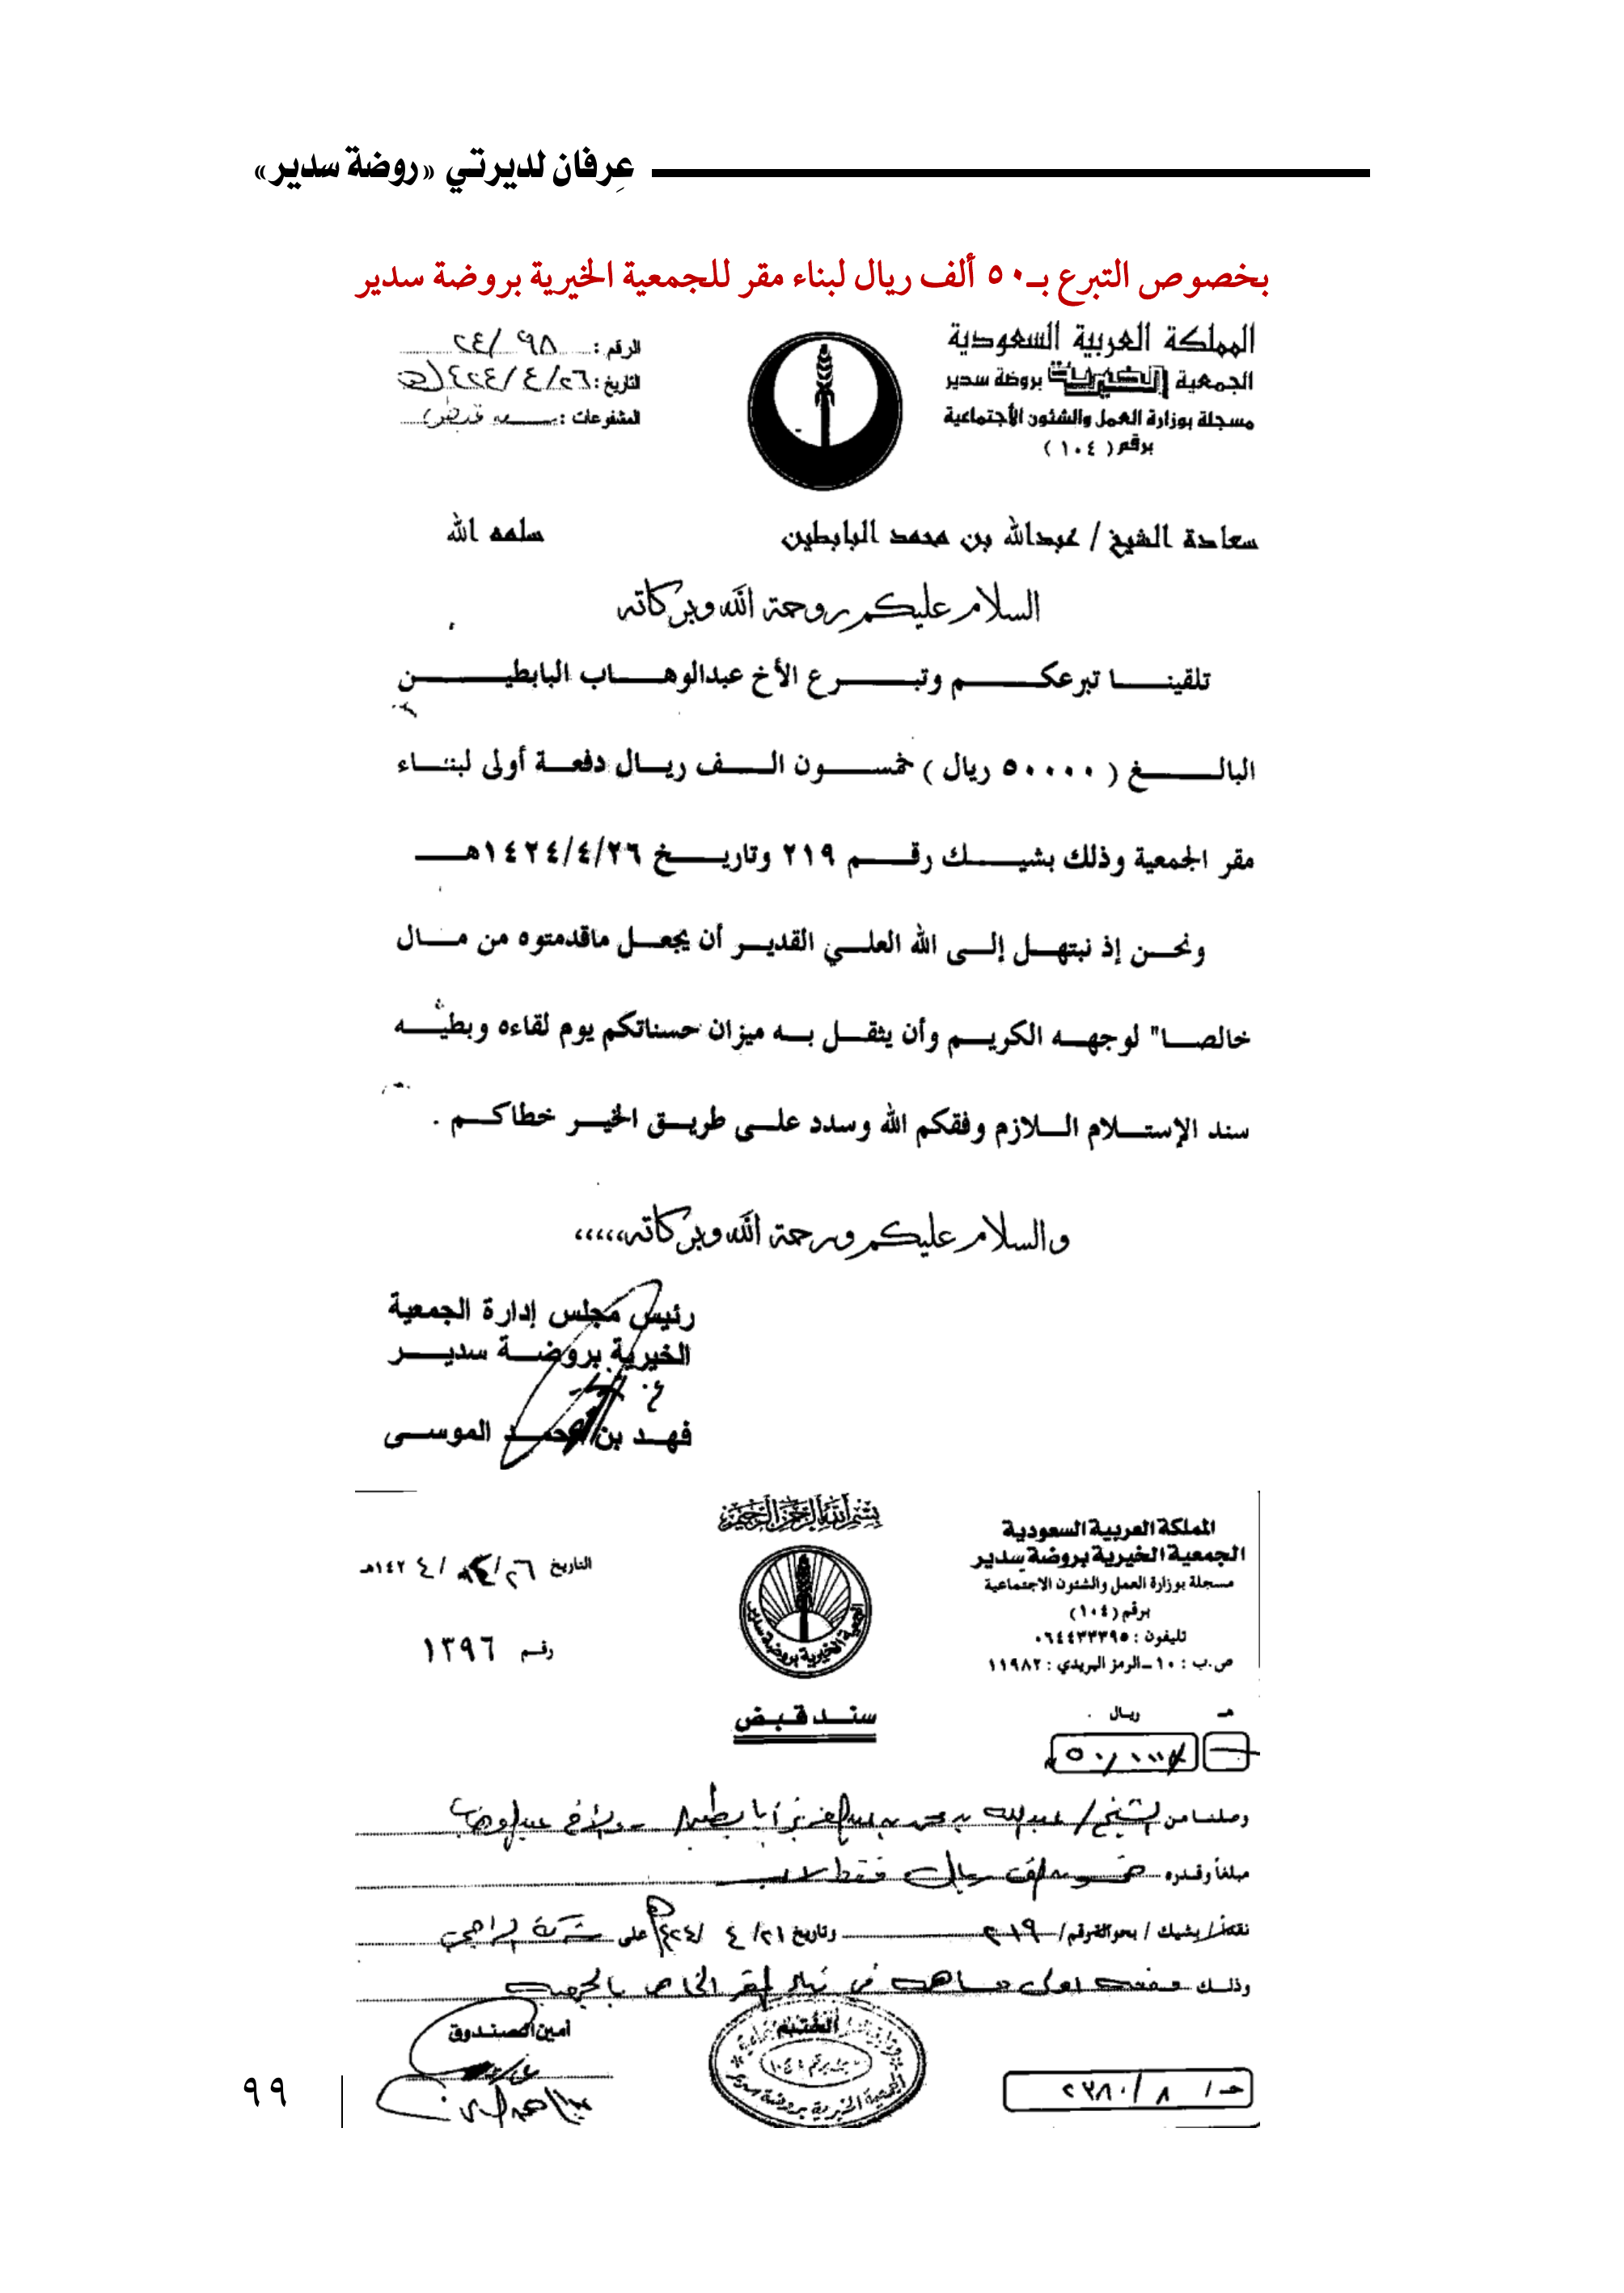 عِرفان لديرتي «روضة سدير»
بخصوص التبرع بـ٥٠ ألف ريال لبناء مقر للجمعية الخيرية بروضة سدير
المملكة العربية السعودية
الجمعية الخيرية بروضة سدير
مسجلة بوزارة العمل والشئون الأجتماعية
برقم ( ١٠٤ )
الرقم : ٩٨ /٢٤
التاريخ : ٢٦/ ٤ /٤٢٤
المشفوعات :
سعادة الشيخ / عبدالله بن محمد البابطين سلمه الله
السلام عليكم وروحمة الله وبركاته
تلقينـا تبرعكـم وتبـرع الأخ عبدالوهـاب البابطيـن
البالـغ ( ٥٠٠٠٠ ريال ) خمسـون الـف ريـال دفعـة أولى لبنـاء
مقر الجمعية وذلك بشيـك رقـم ٢١٩ وتاريـخ ١٤٢٤/٤/٢٦هـ
ونحـن إذ نبتهـل إلـى الله العلـي القديـر أن يجعـل ماقدمتوه من مـال
خالصـا" لوجهـه الكريـم وأن يثقـل بـه ميزان حسناتكم يوم لقاءه وبطيـه
سند الإستـلام الـلازم وفقكم الله وسدد علـى طريـق الخيـر خطاكـم .
والسلام عليكم ورحمة الله وبركاته،،،،،
رئيس مجلس إدارة الجمعية
الخيرية بروضـة سديـر
فهـد بن محمـد الموسـى
بسم الله الرحمن الرحيم
المملكة العربية السعودية
الجمعية الخيرية بروضة سدير
مسجلة بوزارة العمل والشئون الاجتماعية
برقم (١٠٤)
تليفون : ٠٦٤٤٣٣٣٩٥
ص.ب : ١٠ ـ الرمز البريدي : ١١٩٨٢
التاريخ ٢٦/ /١٤٢٤هـ
رقـم ١٣٩٦
الجمعية الخيرية بروضة سدير
سنـد قـبـض
هـ ريـال
٥٠/٠٠٠
وصلنـا من الشيخ / عبدالله بن محمد بن عبدالعزيز أبابطين - والأخ عبدالوهاب
مبلغاً وقـدره خمسون ألف ريال فقط لا غير
نقداً / بشيك / بحوالة رقم / ٢١٩ وتاريخ ٢١/ ٤ /٤٢٤ على شركة الراجحي
وذلـك دفعة أولى مساهمة في بناء المقر الخاص بالجمعية
أمين الصندوق
الختـم
الجمعية الخيرية بروضة سدير
حـ/ ٨ /٢٣٨٠
٩٩